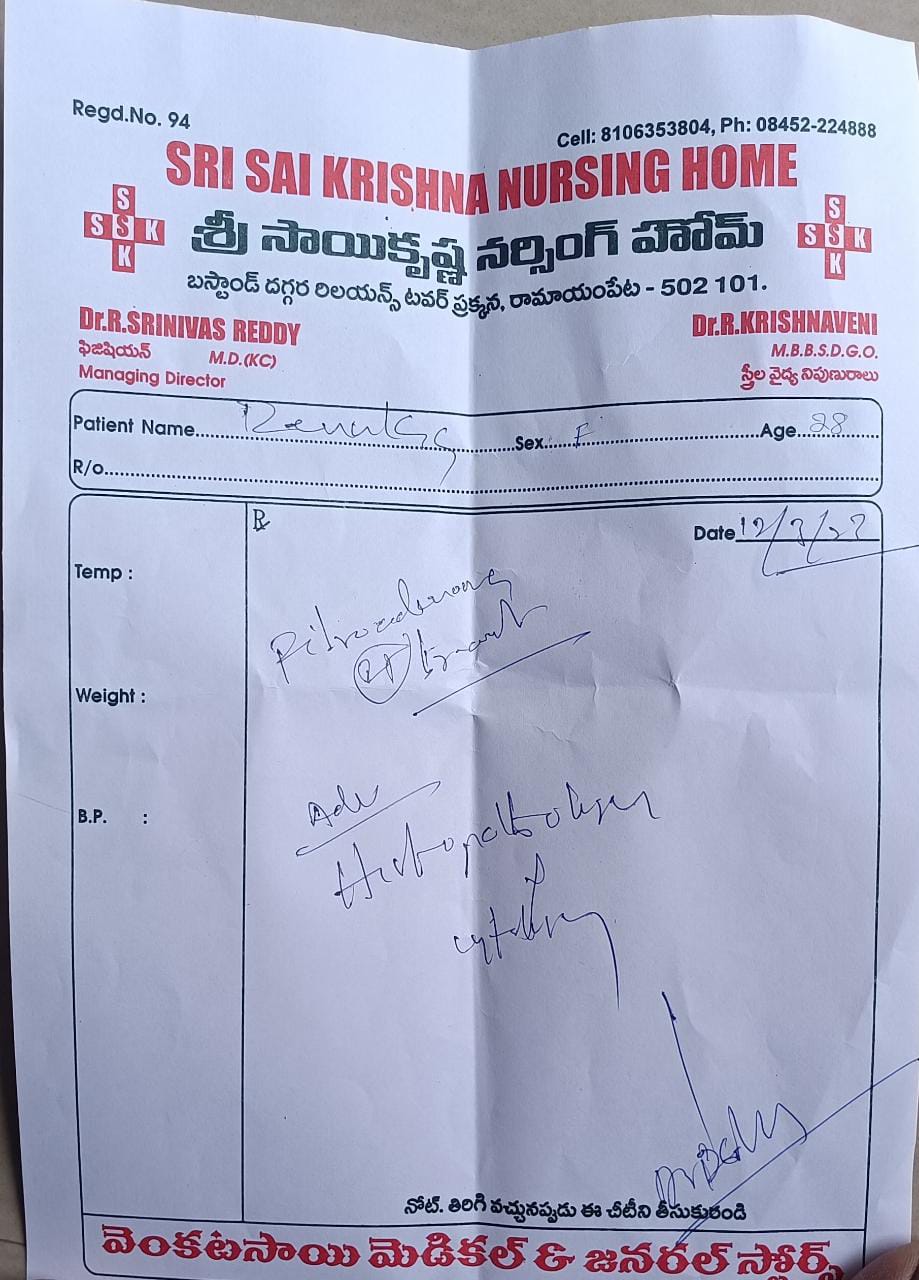 Regd.No. 94
Cell: 8106353804, Ph: 08452-224888
SRI SAI KRISHNA NURSING HOME
S
S S K
K
శ్రీ సాయికృష్ణ నర్సింగ్ హోమ్
S
S S K
K
బస్టాండ్ దగ్గర రిలయన్స్ టవర్ ప్రక్కన, రామాయంపేట - 502 101.
Dr.R.SRINIVAS REDDY
ఫిజిషియన్ M.D.(KC)
Managing Director
Dr.R.KRISHNAVENI
M.B.B.S.D.G.O.
స్త్రీల వైద్య నిపుణురాలు
Patient Name Renuka Sex F Age 28
R/o
Rx
Date
Temp :
Weight :
B.P. :
Adv
Histopathology
cytology
నోట్. తిరిగి వచ్చునప్పుడు ఈ చీటీని తీసుకురండి
వెంకటసాయి మెడికల్ & జనరల్ స్టోర్స్